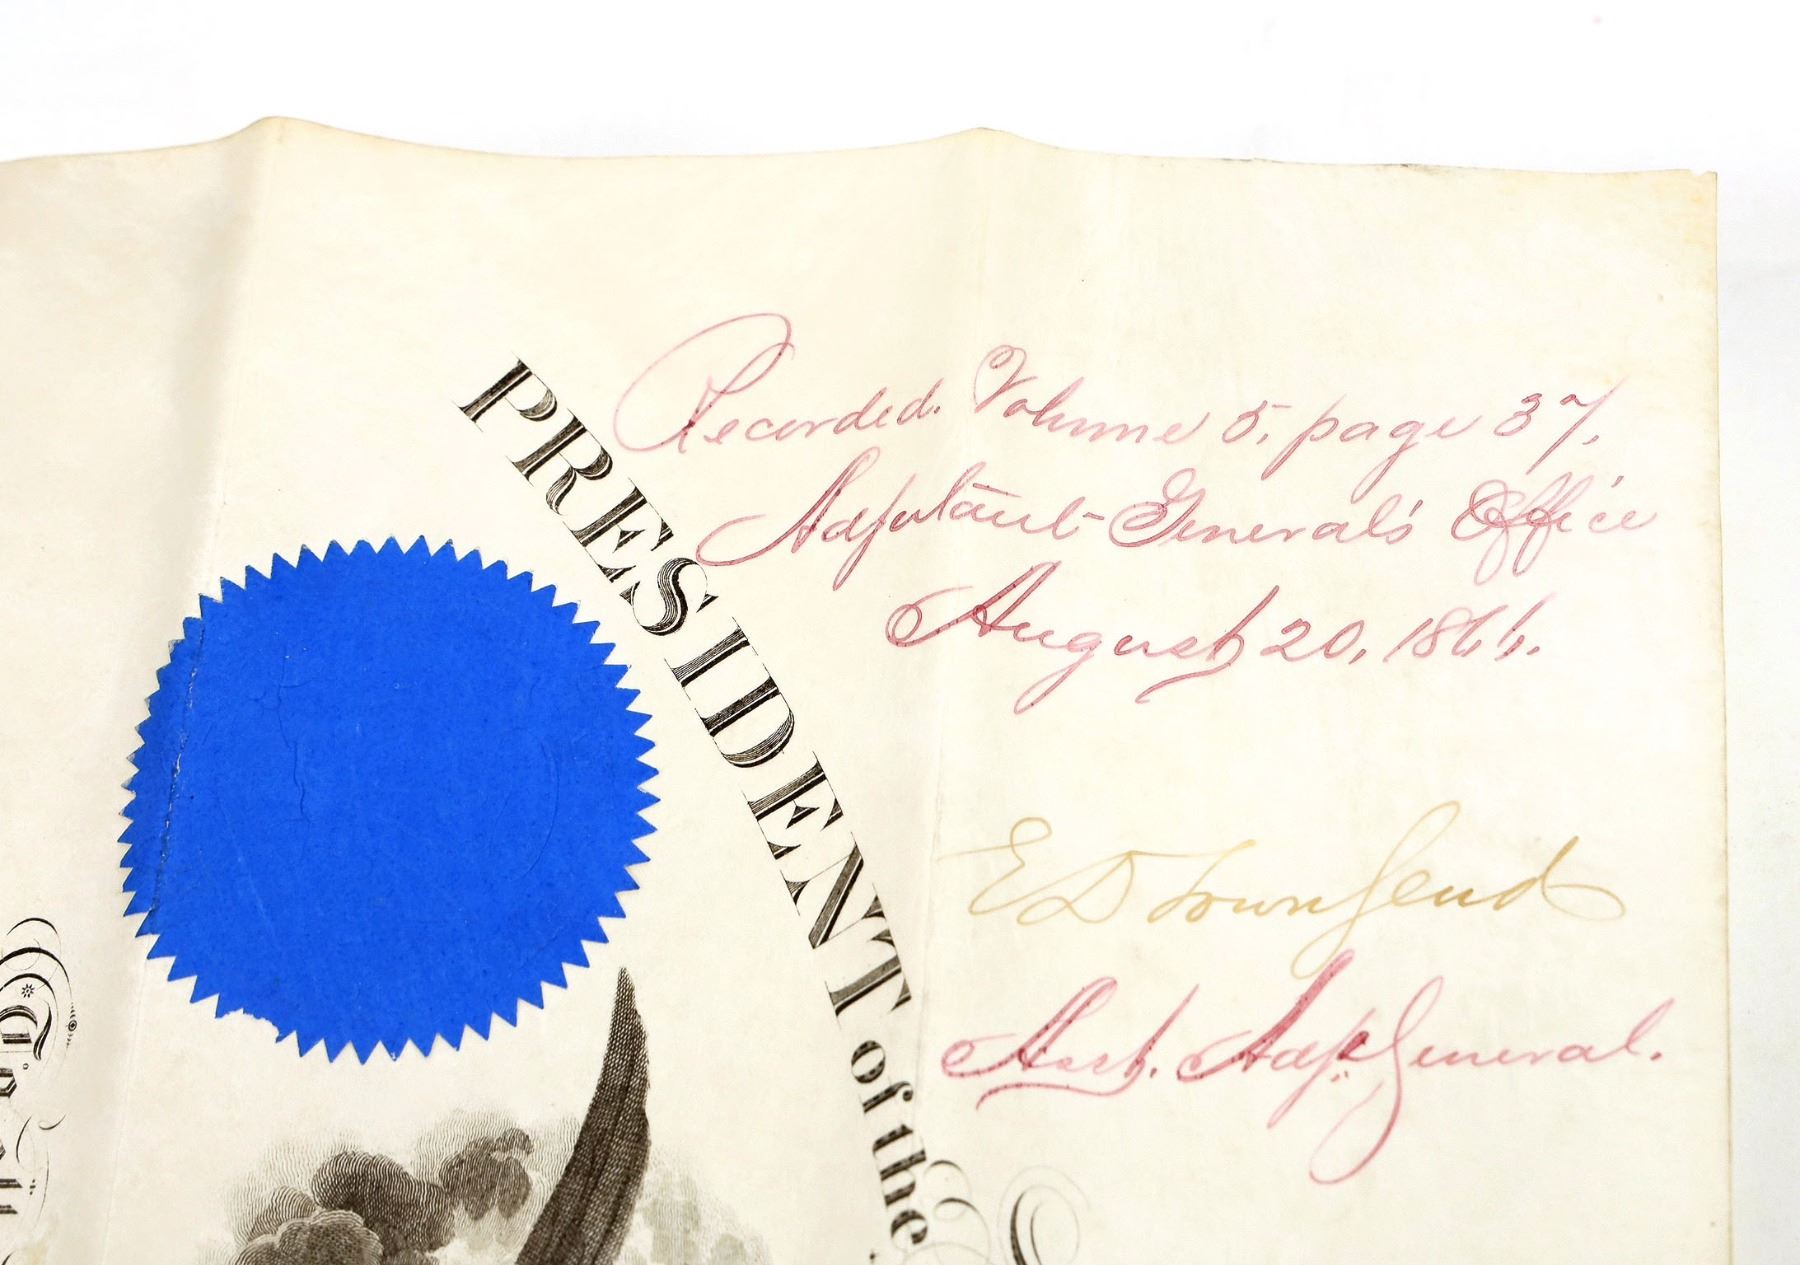 Recorded. Volume 5, page 37.
Adjutant General's Office
August 20, 1866.
PRESIDENT of the
E D Townsend
Asst. Adj. General.